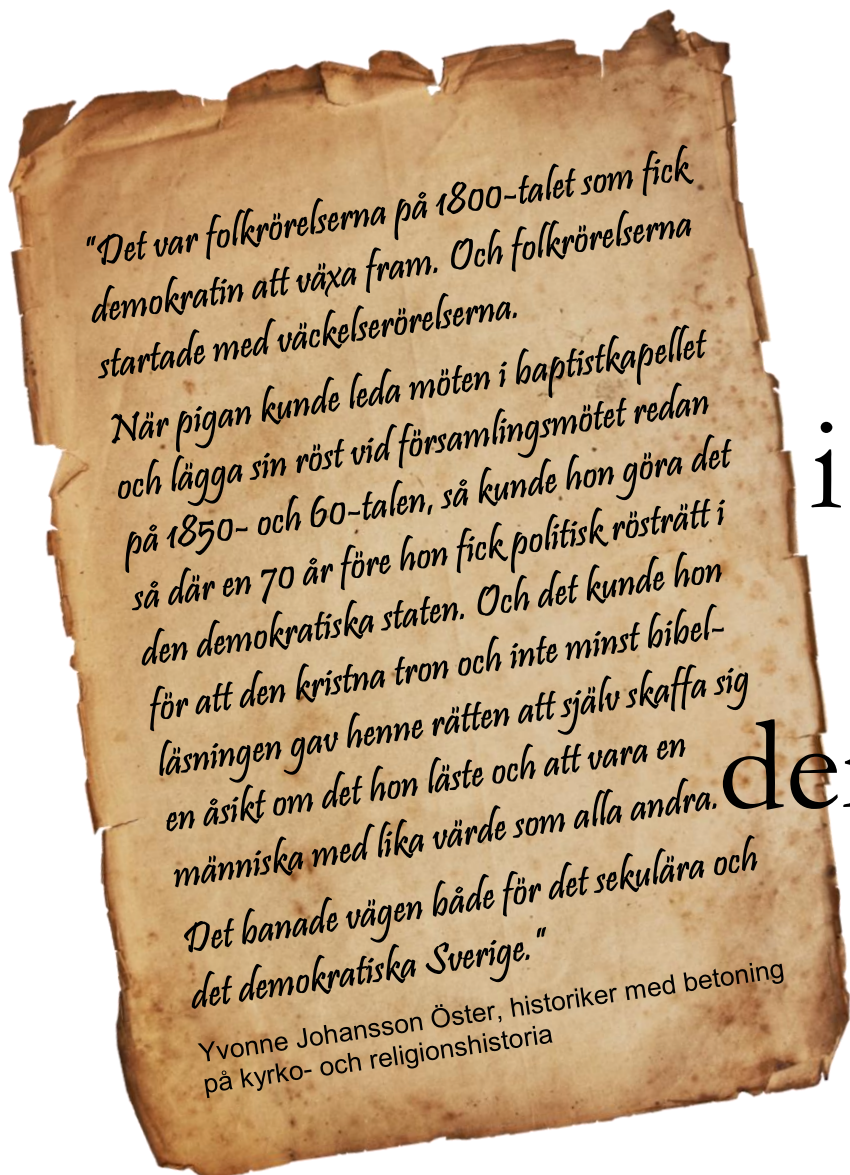 "Det var folkrörelserna på 1800-talet som fick
demokratin att växa fram. Och folkrörelserna
startade med väckelserörelserna.
När pigan kunde leda möten i baptistkapellet
och lägga sin röst vid församlingsmötet redan
på 1850- och 60-talen, så kunde hon göra det
så där en 70 år före hon fick politisk rösträtt i
den demokratiska staten. Och det kunde hon
för att den kristna tron och inte minst bibel-
läsningen gav henne rätten att själv skaffa sig
en åsikt om det hon läste och att vara en
människa med lika värde som alla andra.
Det banade vägen både för det sekulära och
det demokratiska Sverige."
Yvonne Johansson Öster, historiker med betoning
på kyrko- och religionshistoria
i